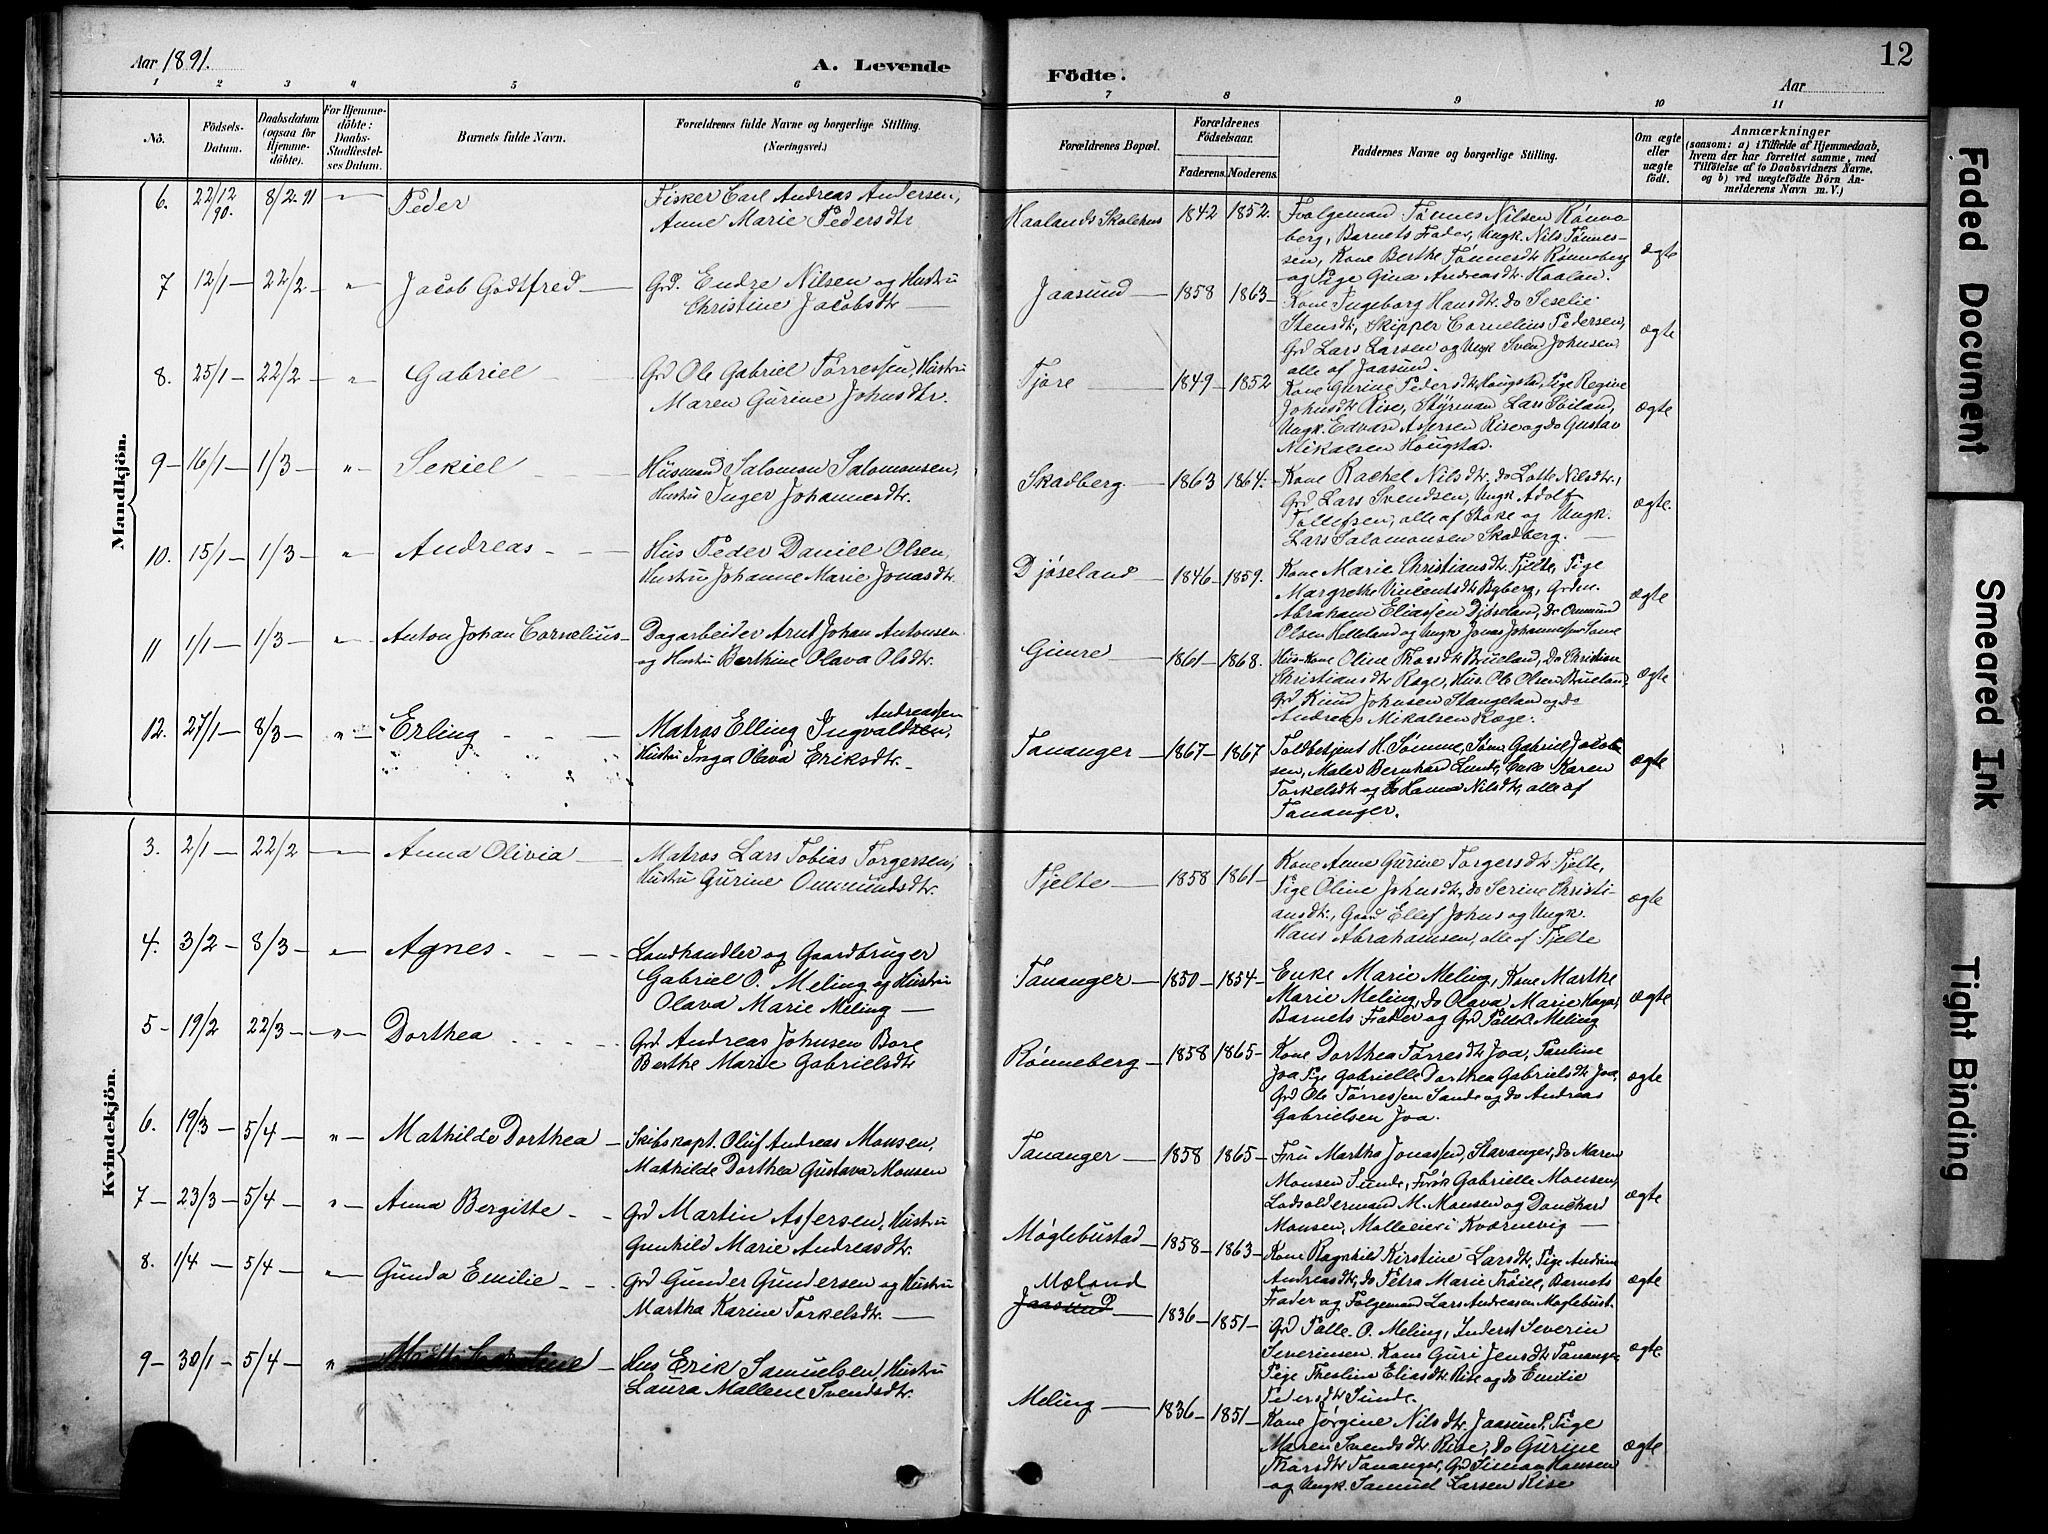 Aar 1891.
A. Levende
Födte.
Aar
12
1 2 3 4 5 6 7 8 9 10 11
No.
Födsels-
Datum.
Daabsdatum
(ogsaa for
Hjemme-
döbte).
For Hjemme-
döbte:
Daabs-
Stadfæstel-
ses Datum.
Barnets fulde Navn.
Forældrenes fulde Navne og borgerlige Stilling.
(Næringsvei.)
Forældrenes Bopæl.
Forældrenes
Födselsaar.
Faderens. Moderens.
Faddernes Navne og borgerlige Stilling.
Om ægte
eller
uægte
födt.
Anmærkninger
(saasom: a) i Tilfælde af Hjemmedaab,
hvem der har forrettet samme, med
Tilföielse af to Daabsvidners Navne.
og b) ved uægtefödte Börn An-
melderens Navn m. V.)
Mandkjön.
6. 22/12 90. 8/2 91 " Peder
Fisker Carl Andreas Andersen,
Anne Marie Pedersdtr
Haalands Skolehus 1842 1852.
Tønnes Nilsen Rønne-
berg, Barnets Fader, Ungk. Nils Tønnes-
sen, Kone Berthe Tønnesdtr Rønneberg
og Pige Gina Andreasdtr. Haalan.
ægte
7 12/1 22/2 " Jacob Godtfred
Grd. Endre Nilsen og Hustru
Christine Jacobsdtr
Jaasund 1858 1863
Kone Ingeborg Hansdtr. do Seselie
Stensdtr, Skipper Cornelius Pedersen,
Grd Lars Larsen og Ungk Svend Johnsen
alle af Jaasund.
ægte
8. 25/1 22/2 " Gabriel
Grd Ole Gabriel Tørressen, Hustru
Maren Gurine Johnsdtr.
Tjøre 1849 1852
Kone Gurine Pedersdtr Hougstad, Pige Regine
Johnsdtr Rise, Styrmand Lars Søiland,
Ungk. Edvard Assersen Rise og do Gustav
Mikalsen Hougstad.
ægte
9 16/1 1/3 " Sekiel
Husmand Salomon Salomonsen,
Hustru Inger Johannesdtr.
Skadberg 1863 1864.
Kone Rachel Nilsdtr, do Lotte Nilsdtr.,
Grd Lars Svendsen, Ungk Adolf
Tollefsen, alle af Stoke og Ungk.
Lars Salomonsen Skadberg.
ægte.
10. 15/1 1/3 " Andreas
Hus Peder Daniel Olsen,
Hustru Johanne Marie Jonasdtr.
Djøseland 1846 1859.
Kone Marie Christiansdtr. Tjelte, Pige
Margrethe Vincentsdtr Bybberg,
Abraham Eliassen Djøseland, do Ommund
Olsen Helleland og Ungk Jonas Johannessen
ægte
11 1/1 1/3 " Anton Johan Cornelius
Dagarbeider Arnt Johan Antonsen
og Hustru Berthine Olava Olsdtr.
Gimre 1861 1868.
Hus-Kone Oline Thorsdtr Brueland, Do Christine
Christiansdtr Ræge, Hus. Ole Olsen Brueland,
Grd Knud Johnsen Stangeland og do
Andreas Mikalsen Ræge.
ægte
12. 27/1 8/3 " Erling
Andreassen
Matros Elling Ingvaldsen,
Hustru Inga Olava Eriksdtr.
Tananger 1867 1867
Toldbetjent H. Sømme, Søm. Gabriel Jacob-
sen, Maler Bernhard Lunde, Enke Karen
Torkelsdtr og do Hanna Nilsdtr, alle af
Tananger.
ægte
Kvindekjön.
3. 2/1 22/2 " Anna Olivia
Matros Lars Tobias Torgersen,
Hustru Gurine Ommundsdtr.
Tjelte 1858 1861
Kone Anne Gurine Torgersdtr Tjelte,
Pige Oline Johnsdtr, do Serine Christi-
ansdtr., Ellef Johns og Ungk.
Hans Abrahamsen, alle af Tjelte
ægte
4. 3/2 8/3 " Agnes
Landhandler og Gaardbruger
Gabriel O. Meling og Hustru
Olava Marie Meling
Tananger 1850 1854
Enke Marie Meling, Kone Marthe
Marie Meling, do Olava Marie Haga,
Barnets Fader og Grd Tolle O. Meling
ægte
5 19/2 22/3 " Dorthea
Grd Andreas Johnsen Bore
Berthe Marie Gabrielsdtr
Rønneberg 1858 1865
Kone Dorthea Tørresdtr Joa, Pauline
Joa Pige Gabrielle Dorthea Gabrielsdtr Joa,
Grd Ole Tørressen Sande og do Andreas
Gabrielsen Joa.
ægte
6. 19/3 5/4 " Mathilde Dorthea
Skibskapt. Oluf Andreas Monsen,
Mathilde Dorthea Gustava Monsen
Tananger 1858 1865
Fru Martha Jonassen, Stavanger, do Maren
Monsen Sunde, Frøk Gabrielle Monsen,
Lodsoldermand M. Monsen og Danchard
Monsen, Mølleeier i Kværnevig
ægte
7 23/3 5/4 " Anna Bergitte
Grd Martin Assersen, Hustru
Gunhild Marie Andreasdtr.
Møglebustad 1858 1863
Kone Ragnhild Kirstine Larsdtr, Pige Andrine
Andreasdtr, do Petra Marie Trøiel, Barnets
Fader og Folgemand Lars Andreasen Møglebust.
ægte
8. 1/4 5/4 " Gunda Emilie
Grd Gunder Gundersen og Hustru
Martha Karine Torkelsdtr.
Mæland
Jaasund 1836 1851
Grd Tolle O. Meling, Inderst Severin
Severinsen. Kone Guri Jensdtr Tananger,
Pige Theoline Eliasdtr Rise og do Emilie
Pedersdtr Sunde.
ægte
9 30/1 5/4 "
Hus Erik Samuelsen, Hustru
Laura Mallene Svendsdtr.
Meling 1836 1851
Kone Jørgine Nilsdtr. Jaasund, Pige
Maren Svendsdtr. Rise, do Gurine
Thorsdtr Tananger, Grd Simon Hansen
og Ungk. Samuel Larsen Rise
ægte
Faded Document
Smeared Ink
Tight Binding